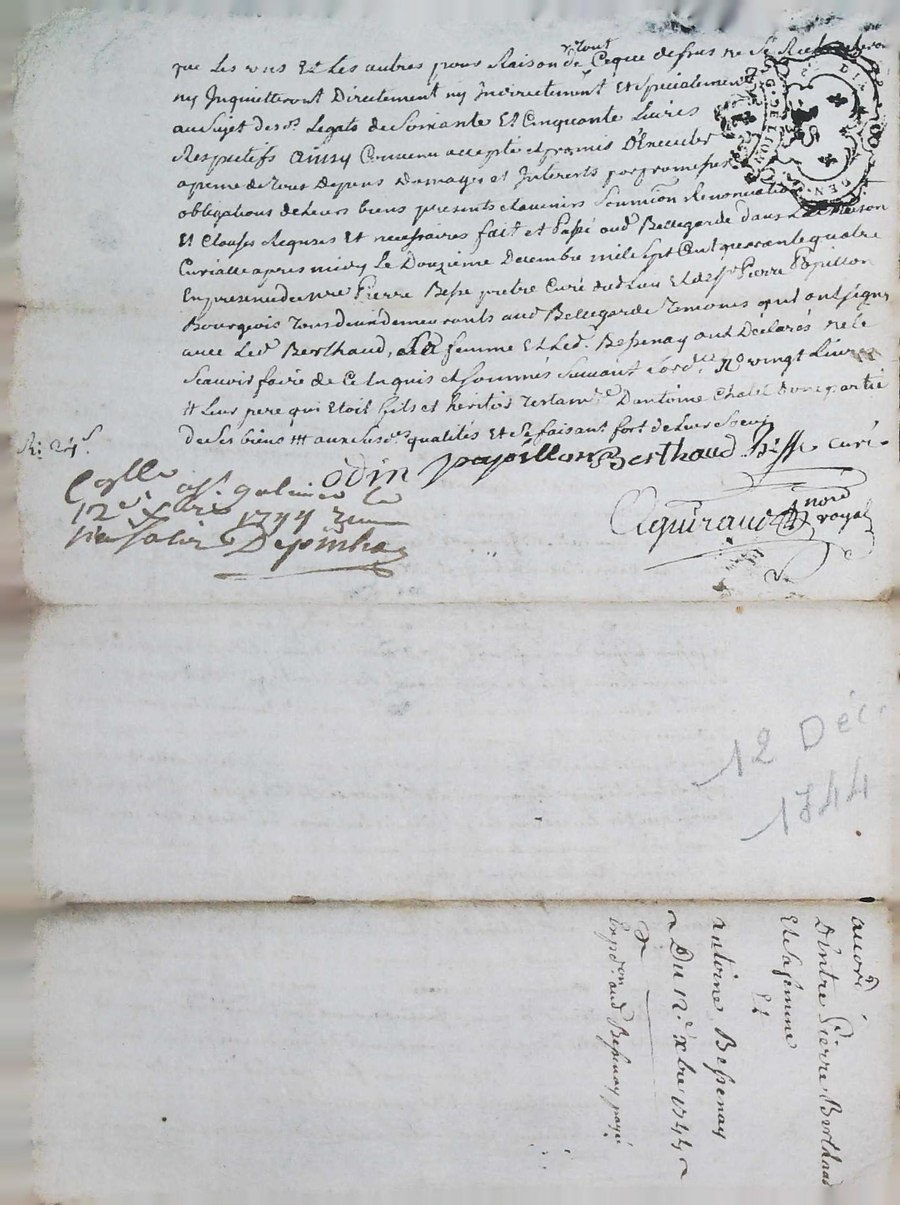 que Les uns Et Les autres pour Raison de tout Ceque dessus ne Se Rechercheron
ny Inquietteront Directement ny Indirectement Et Spécialement
au Sujet desd. Legats de Soixante Et Cinquante Livres
Respectifs ainsy Convenu accepté et promis D'Executer
apeine de tous Depens Damages et Interets par promesses
obligations de Leurs biens presents et avenirs Soumion Renonciation
Et Clauses Requises Et necessaires fait et Passé aud. Bellegarde dans La Maison
Curialle apres midy Le Douzieme Decembre mile Sept Cent quarante quatre
En presence de mre Pierre Besse pretre Curé dud. Lieu Et de Sr Pierre Papillon
Bourgeois tous deux demeurants aud. Bellegarde temoins qui ont signé
avec Led. Berthaud, Sa femme Et Led. Bessenay ont Déclarés ne Le
Scavoir faire de Ce Enquis et Sommés Suivant Lord.ce vingt Livres
# Leur pere qui etoit fils et heritié Testam.re D'antoine
de Ses biens ### auxsusd. qualités Et Se faisant fort de Leur
R: 24s
odin papillon Berthaud Besse curé
Aguiraud nore royal
12e 1744
12 Déc.
1744
acord
D'entre Pierre Berthaud
Et Sa femme
Et
antoine Bessenay
Du 12e xbre 1744
Exp.on aud. Bessenay payé